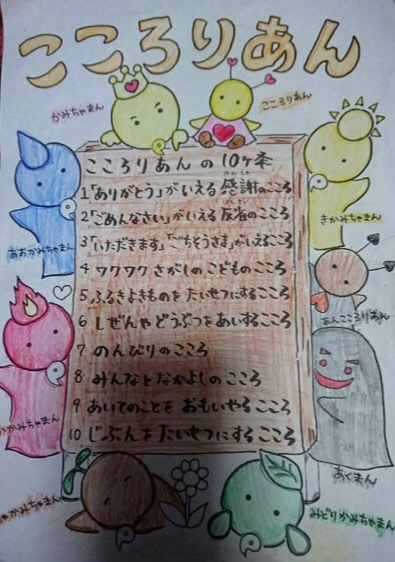 こころりあん
かみちゃまん
こころりあん
こころりあんの10ヶ条
1「ありがとう」がいえる感謝のこころ
かんしゃ
2「ごめんなさい」がいえる反省のこころ
はんせい
3「いただきます」「ごちそうさま」がいえるこころ
4 ワクワクさがしのこどものこころ
5 ふるきよきものをたいせつにするこころ
6 しぜんやどうぶつをあいするこころ
7 のんびりのこころ
8 みんなとなかよしのこころ
9 あいてのことをおもいやるこころ
10 じぶんをたいせつにするこころ
あおかみちゃまん
きかみちゃまん
あんこころりあん
かみちゃまん
あくまん
かみちゃまん
みどりかみちゃまん